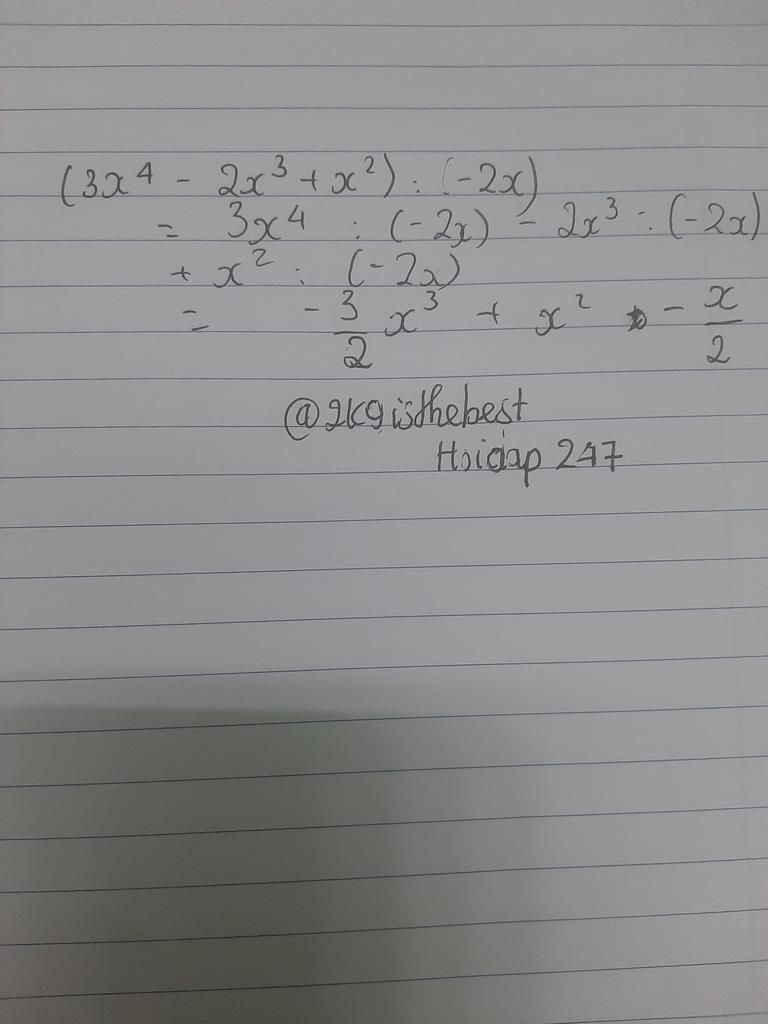 (3x⁴ - 2x³ + x²) : (-2x)
= 3x⁴ : (-2x) - 2x³ : (-2x)
+ x² : (-2x)
= -3/2 x³ + x² - x/2
@2K9isthebest
Hoidap 247